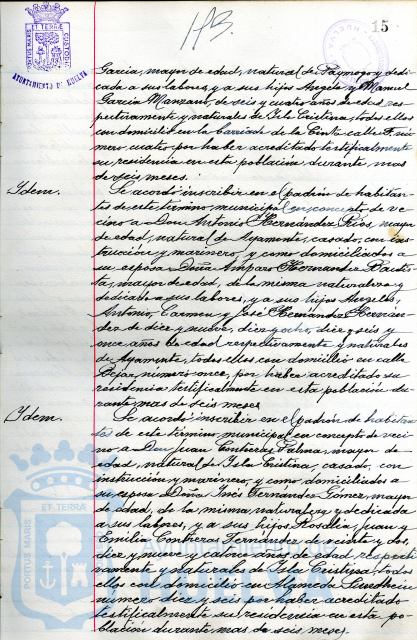 15
PORTUS MARIS ET TERRÆ CUSTODIA
AYUNTAMIENTO DE HUELVA
García, mayor de edad, natural de Paymogo y dedi-
cada a sus labores, y a sus hijos Angela y Manuel
García Manzano, de seis y cuatro años de edad res-
pectivamente y naturales de Isla Cristina, todos ellos
con domicilio en la barriada de la Cinta calle F. nú-
mero cuatro por haber acreditado testificalmente
su residencia en esta población durante mas
de seis meses.
Idem.
Se acordó inscribir en el padrón de habitan-
tes de este término municipal en concepto de ve-
cino a Don Antonio Hernández Ríos, mayor
de edad, natural de Ayamonte, casado, con ins-
trucción y marinero, y como domiciliados a
su esposa Doña Amparo Hernandez Bautis-
ta, mayor de edad, de la misma naturaleza y
dedicada a sus labores, y a sus hijos Angeles,
Antonio, Carmen y José Hernández Hernán-
dez de diez y nueve, diez y ocho, diez y seis y
once años de edad respectivamente y naturales
de Ayamonte, todos ellos con domicilio en calle
Bejar número once, por haber acreditado su
residencia testificalmente en esta población du-
rante mas de seis meses
Idem.
Se acordó inscribir en el padrón de habitan-
tes de este término municipal en concepto de veci-
no a Don Juan Contreras Palma, mayor de
edad, natural de Isla Cristina, casado, con
instrucción y marinero, y como domiciliados a
su esposa Doña Inés Fernández Gómez, mayor
de edad, de la misma naturaleza y dedicada
a sus labores, y a sus hijos Rosalía, Juan y
Emilia Contreras Fernández de veinte y dos,
diez y nueve y catorce años de edad respecti-
vamente y naturales de Isla Cristina, todos
ellos con domicilio en Alameda Sundheim
número diez y seis por haber acreditado
testificalmente su residencia en esta po-
blación durante mas de seis meses.
PORTUS MARIS ET TERRÆ
Ayuntamiento de